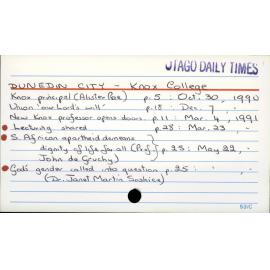 OTAGO DAILY TIMES
DUNEDIN CITY - Knox College
Knox principal (Alister Rae) p. 5 : Oct. 30, 1990
Union 'our Lord's will' p. 18 : Dec. 7, " .
New Knox professor opens doors. p. 11 : Mar. 4, 1991
• Lecturing shared p. 28 : Mar. 23, " .
• S. African apartheid demeans }
dignity of life for all (Prof } p. 25 : May 22, " .
John de Gruchy)
• God's gender called into question p. 25 : " " .
(Dr. Janet Martin Soskice)